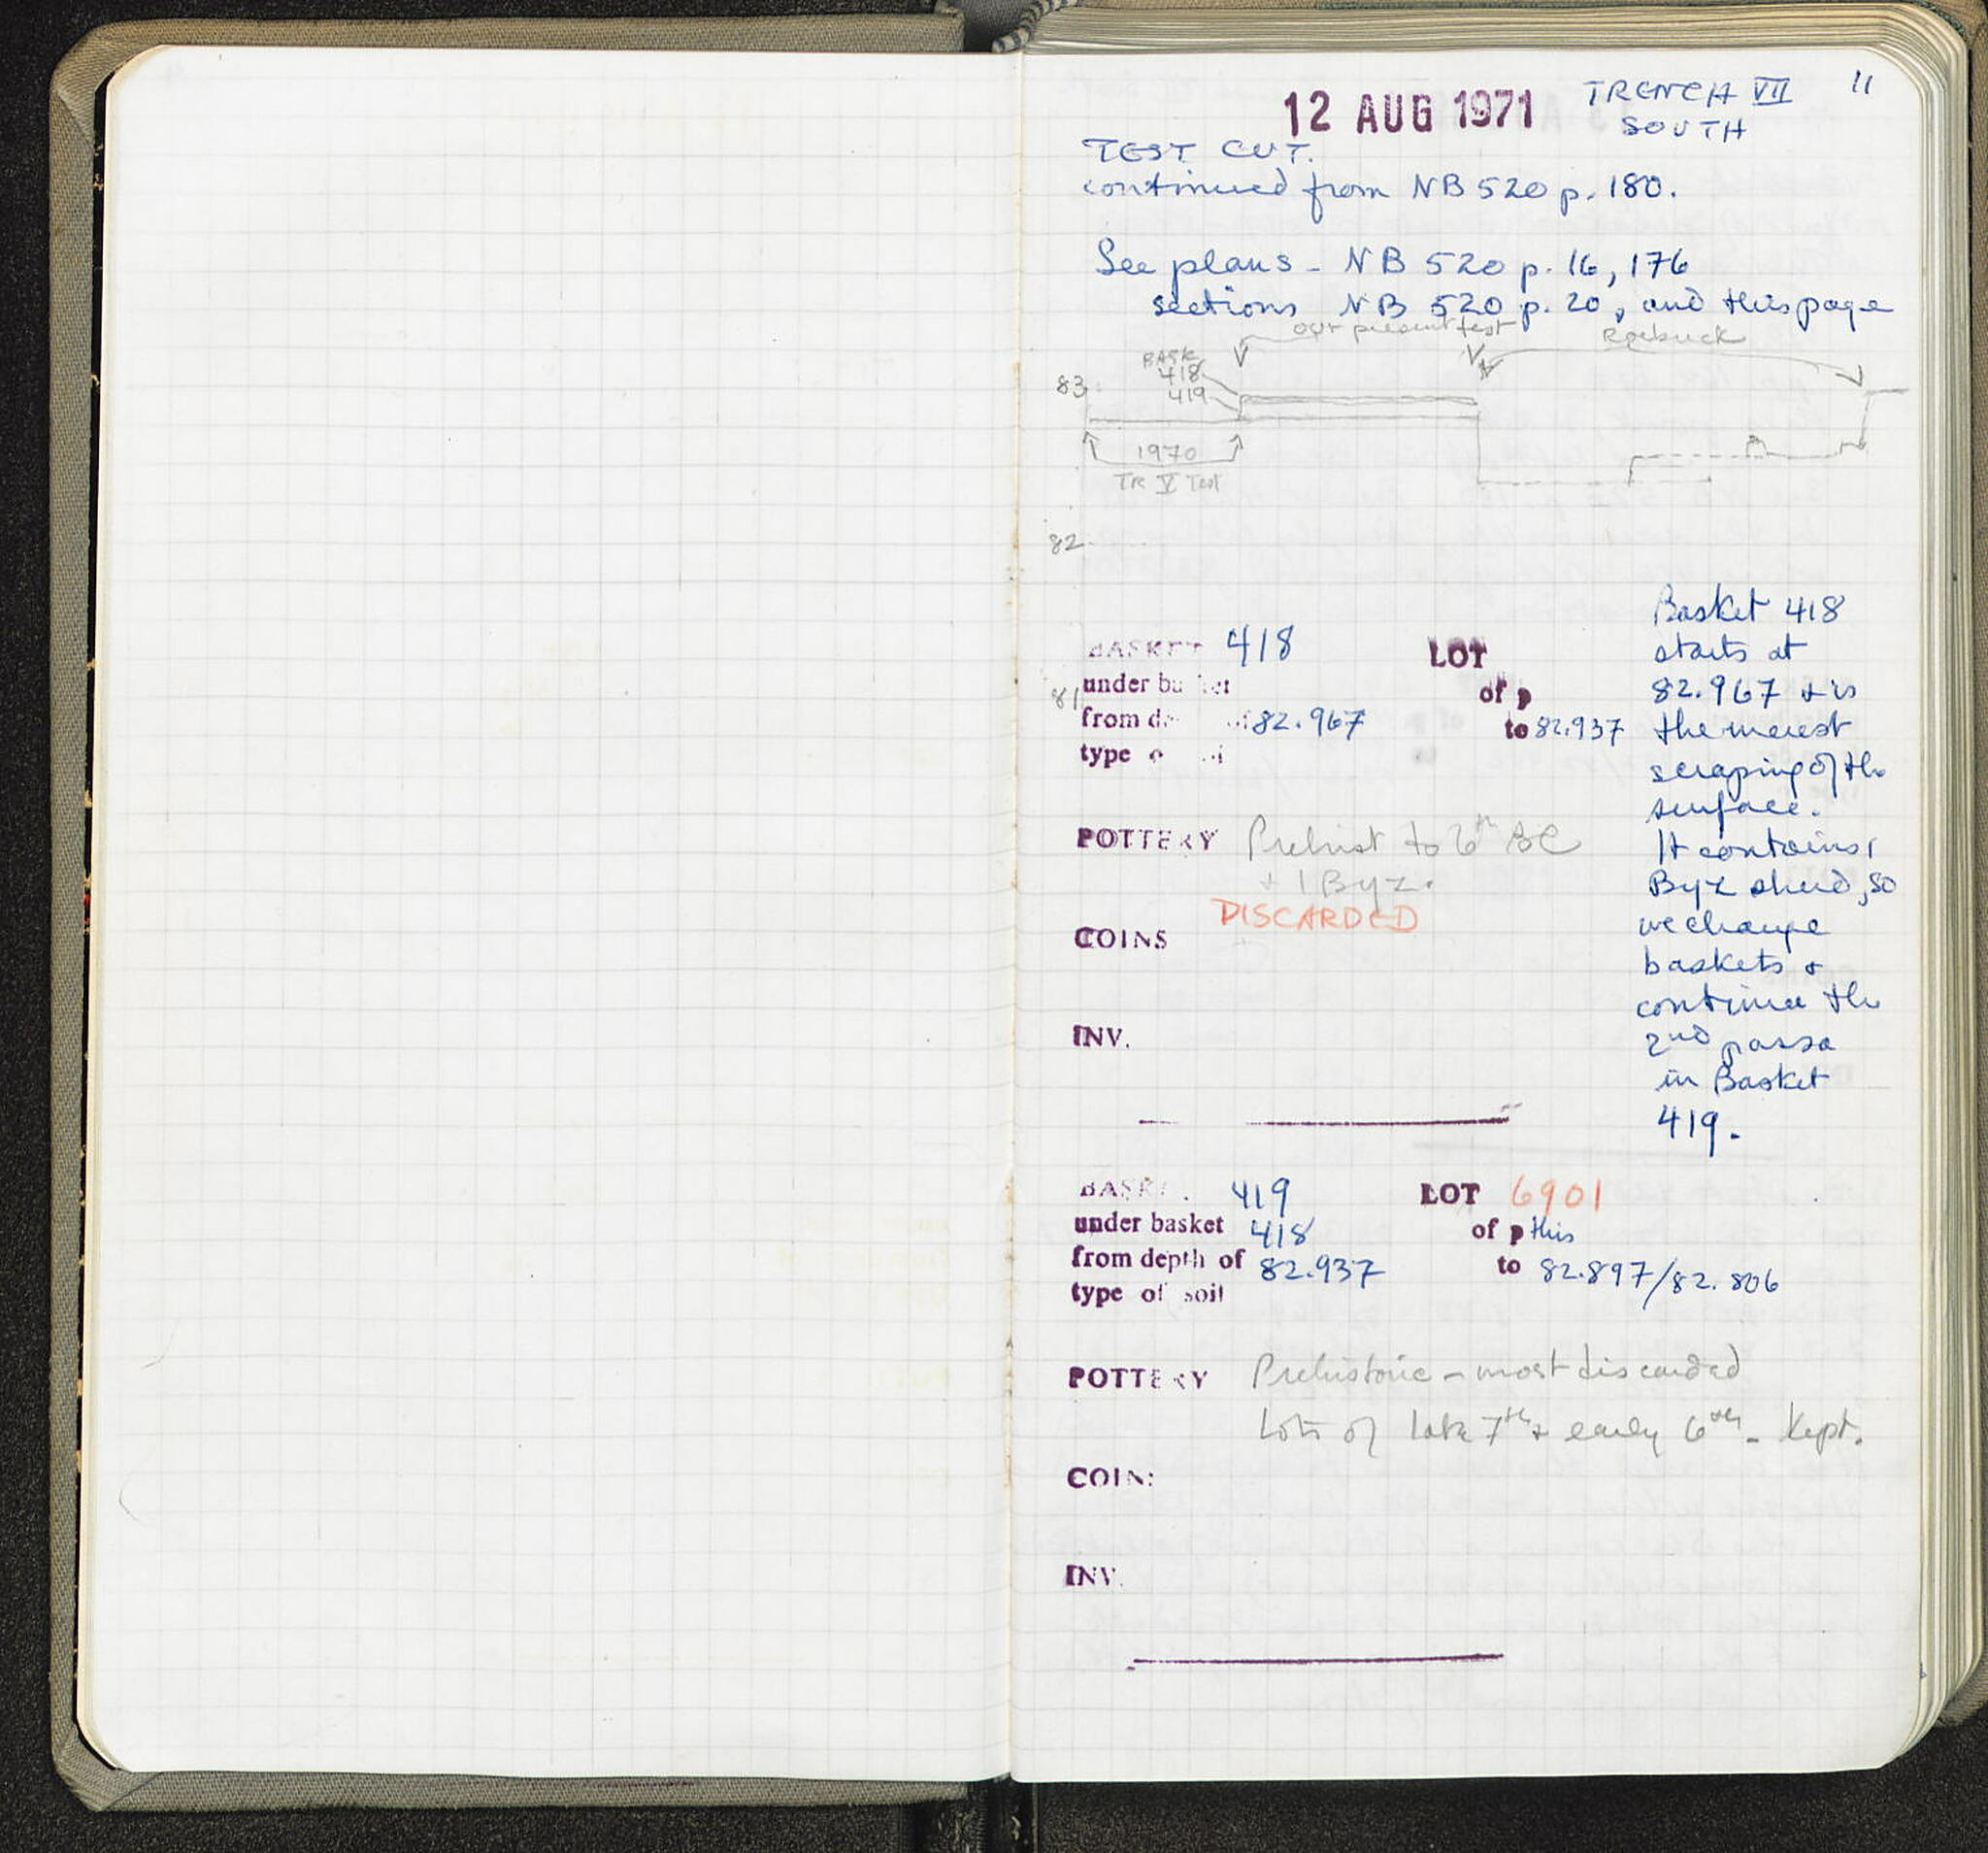 12 AUG 1971 TRENCH VII 11
SOUTH
TEST CUT.
continued from NB 520 p. 180.
See plans - NB 520 p. 16, 176
sections NB 520 p. 20, and this page
our present test Roebuck
BASK
418
83
419
1970
TR V Test
82
81
BASKET 418 LOT
under basket of p
from de of 82.967 to 82.937
type o
POTTERY Prehist to 6th BC
+ 1 Byz.
DISCARDED
COINS
INV.
Basket 418
starts at
82.967 + is
the merest
scraping of the
surface.
It contains 1
Byz sherd, so
we change
baskets &
continue the
2nd passa
in Basket
419.
BASK 419 LOT 6901
under basket 418 of p this
from depth of 82.937 to 82.897/82.806
type of soil
POTTERY Prehistoric - most discarded
Lots of late 7th & early 6th - kept.
COIN:
INV.